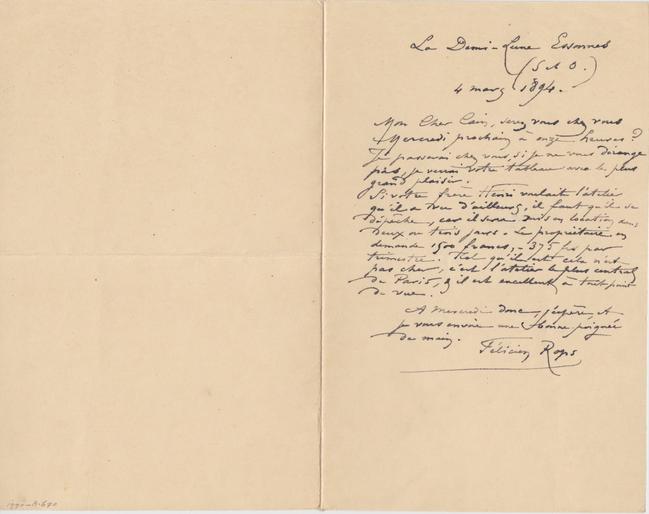 La Demi-Lune Essonnes
(S & O.)
4 mars 1894.
Mon Cher Cain, serez vous chez vous
Mercredi prochain à onze heures?
Je passerai chez vous, si je ne vous dérange
pas, je verrai votre tableau avec le plus
grand plaisir.
Si votre frère Henri voulait l'atelier
qu'il a vu d'ailleurs, il faut qu'il se
dépêche, car il sera mis en location dans
deux ou trois jours. Le propriétaire en
demande 1500 francs, - 375 frs par
trimestre. Tel qu'il est cela n'est
pas cher, c'est l'atelier le plus central
de Paris, & il est excellent à tout point
de vue.
A Mercredi donc, j'espère, &
je vous envoie une bonne poignée
de main.
Félicien Rops